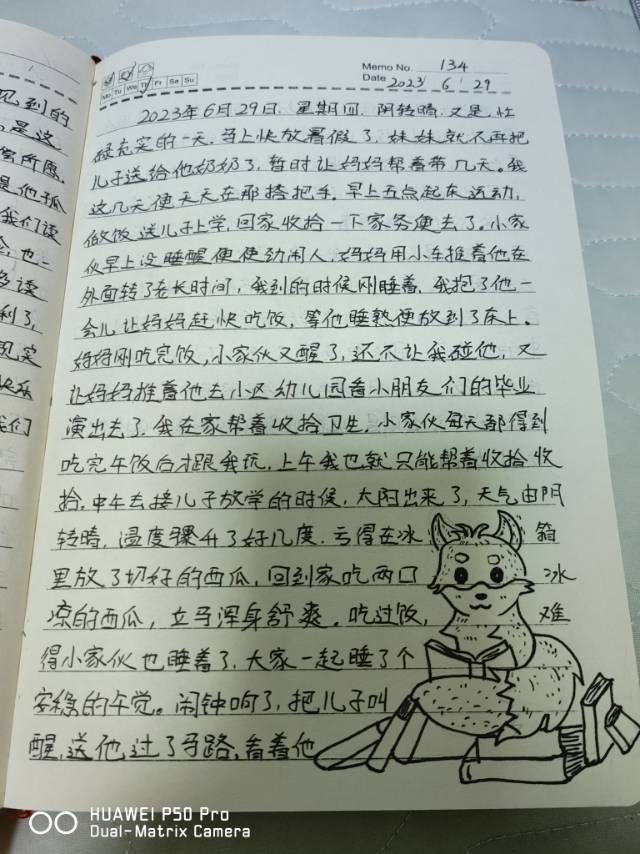 见到的
是这
所愿。
是他孤
我们读
也
多读
利了,
现实
快乐
我们
Mo Tu We Th Fr Sa Su
Memo No. 134
Date 2023 6 29
2023年6月29日. 星期四. 阴转晴. 又是忙
碌充实的一天. 马上快放暑假了, 妹妹就不再把
儿子送给他奶奶了, 暂时让妈妈帮着带几天。我
这几天便天天在那搭把手。早上五点起床运动,
做饭送儿子上学, 回家收拾一下家务便去了。小家
伙早上没睡醒便使劲闹人, 妈妈用小车推着他在
外面转了老长时间, 我到的时候刚睡着, 我抱了他一
会儿让妈妈赶快吃饭, 等他睡熟便放到了床上。
妈妈刚吃完饭, 小家伙又醒了, 还不让我碰他, 又
让妈妈推着他去小区幼儿园看小朋友们的毕业
演出去了. 我在家帮着收拾卫生. 小家伙每天都得到
吃完午饭后才跟我玩, 上午我也就只能帮着收拾收
拾. 中午去接儿子放学的时候. 太阳出来了, 天气由阴
转晴, 温度骤升了好几度. 亏得在冰箱
里放了切好的西瓜, 回到家吃两口冰
凉的西瓜, 立马浑身舒爽。吃过饭, 难
得小家伙也睡着了, 大家一起睡了个
安稳的午觉。闹钟响了, 把儿子叫
醒, 送他过了马路, 看着他
HUAWEI P50 Pro
Dual-Matrix Camera